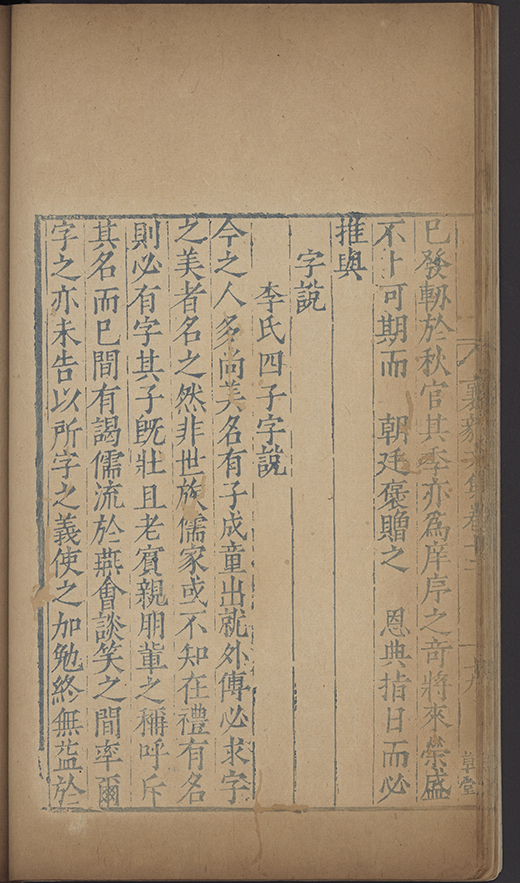 已發軔於秋官其季亦為庠序之奇將來榮盛
不卜可期而　朝廷褒贈之　恩典指日而必
推與
字說
李氏四子字說
今之人多尚美名有子成童出就外傳必求字
之美者名之然非世族儒家或不知在禮有名
則必有字其子既壯且老賓親朋輩之稱呼斥
其名而已間有謁儒流於燕會談笑之間率爾
字之亦未告以所字之義使之加勉終無益於